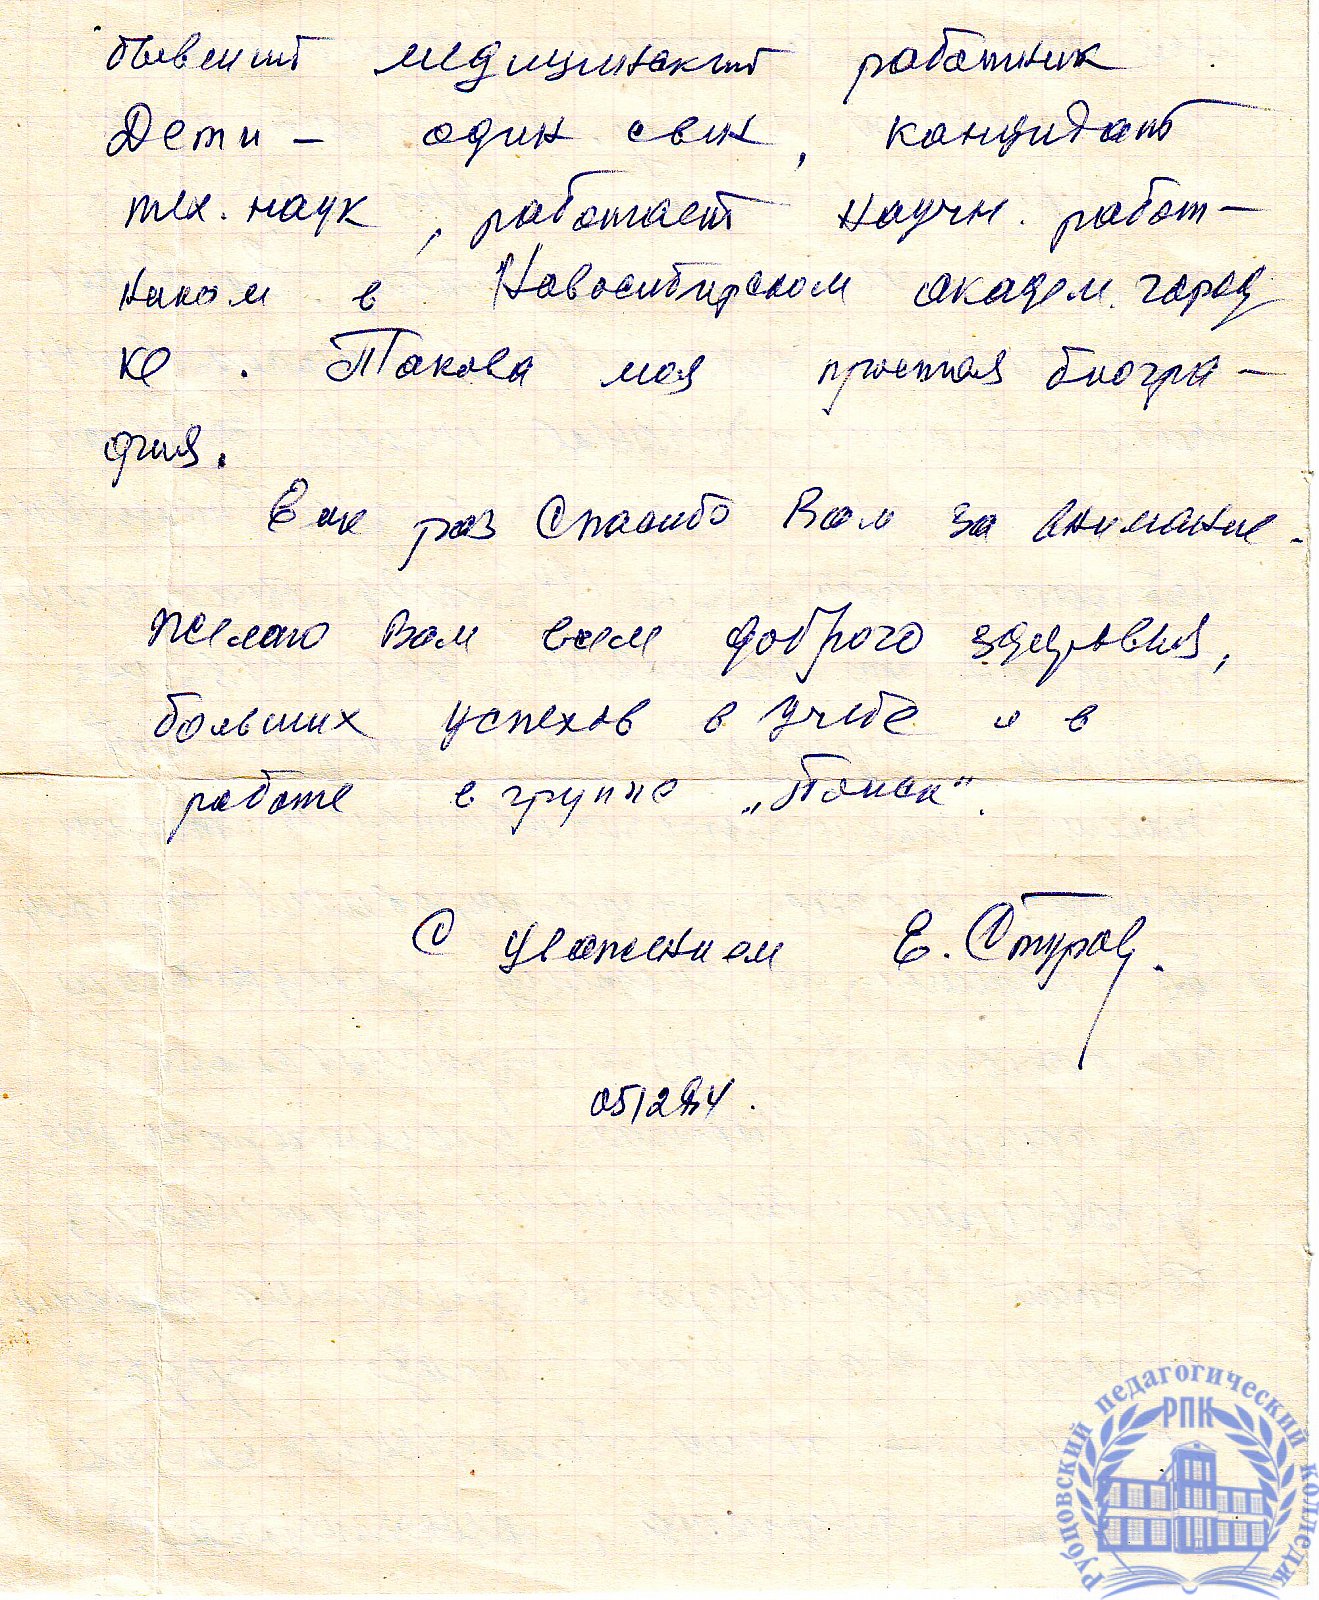 бывший медицинский работник.
Дети – один сын, кандидат
тех. наук, работает научн. работ-
ником в Новосибирском академ. город
ке. Такова моя простая биогра-
фия.
Еще раз Спасибо Вам за внимание.
Желаю Вам всем доброго здоровья,
больших успехов в учебе и в
работе в группе „Поиск“.
С уважением Е. Стуров.
Рубцовский педагогический колледж
РПК